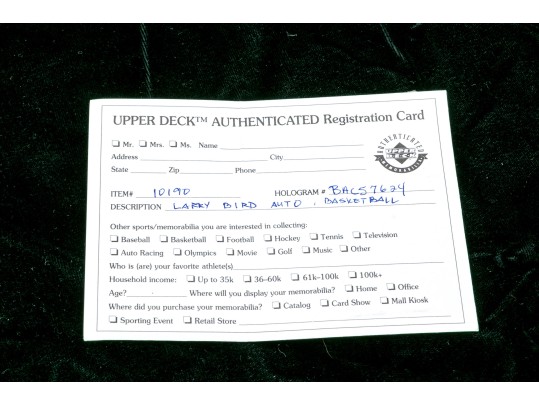 UPPER DECK™ AUTHENTICATED Registration Card
❏ Mr. ❏ Mrs. ❏ Ms. Name
Address City
State Zip Phone
AUTHENTICATED
UPPER DECK
MEMORABILIA
ITEM# 10190 HOLOGRAM # BAC57624
DESCRIPTION LARRY BIRD AUTO. BASKETBALL
Other sports/memorabilia you are interested in collecting:
❏ Baseball ❏ Basketball ❏ Football ❏ Hockey ❏ Tennis ❏ Television
❏ Auto Racing ❏ Olympics ❏ Movie ❏ Golf ❏ Music ❏ Other
Who is (are) your favorite athlete(s)
Household income: ❏ Up to 35k ❏ 36–60k ❏ 61k–100k ❏ 100k+
Age? Where will you display your memorabilia? ❏ Home ❏ Office
Where did you purchase your memorabilia? ❏ Catalog ❏ Card Show ❏ Mall Kiosk
❏ Sporting Event ❏ Retail Store